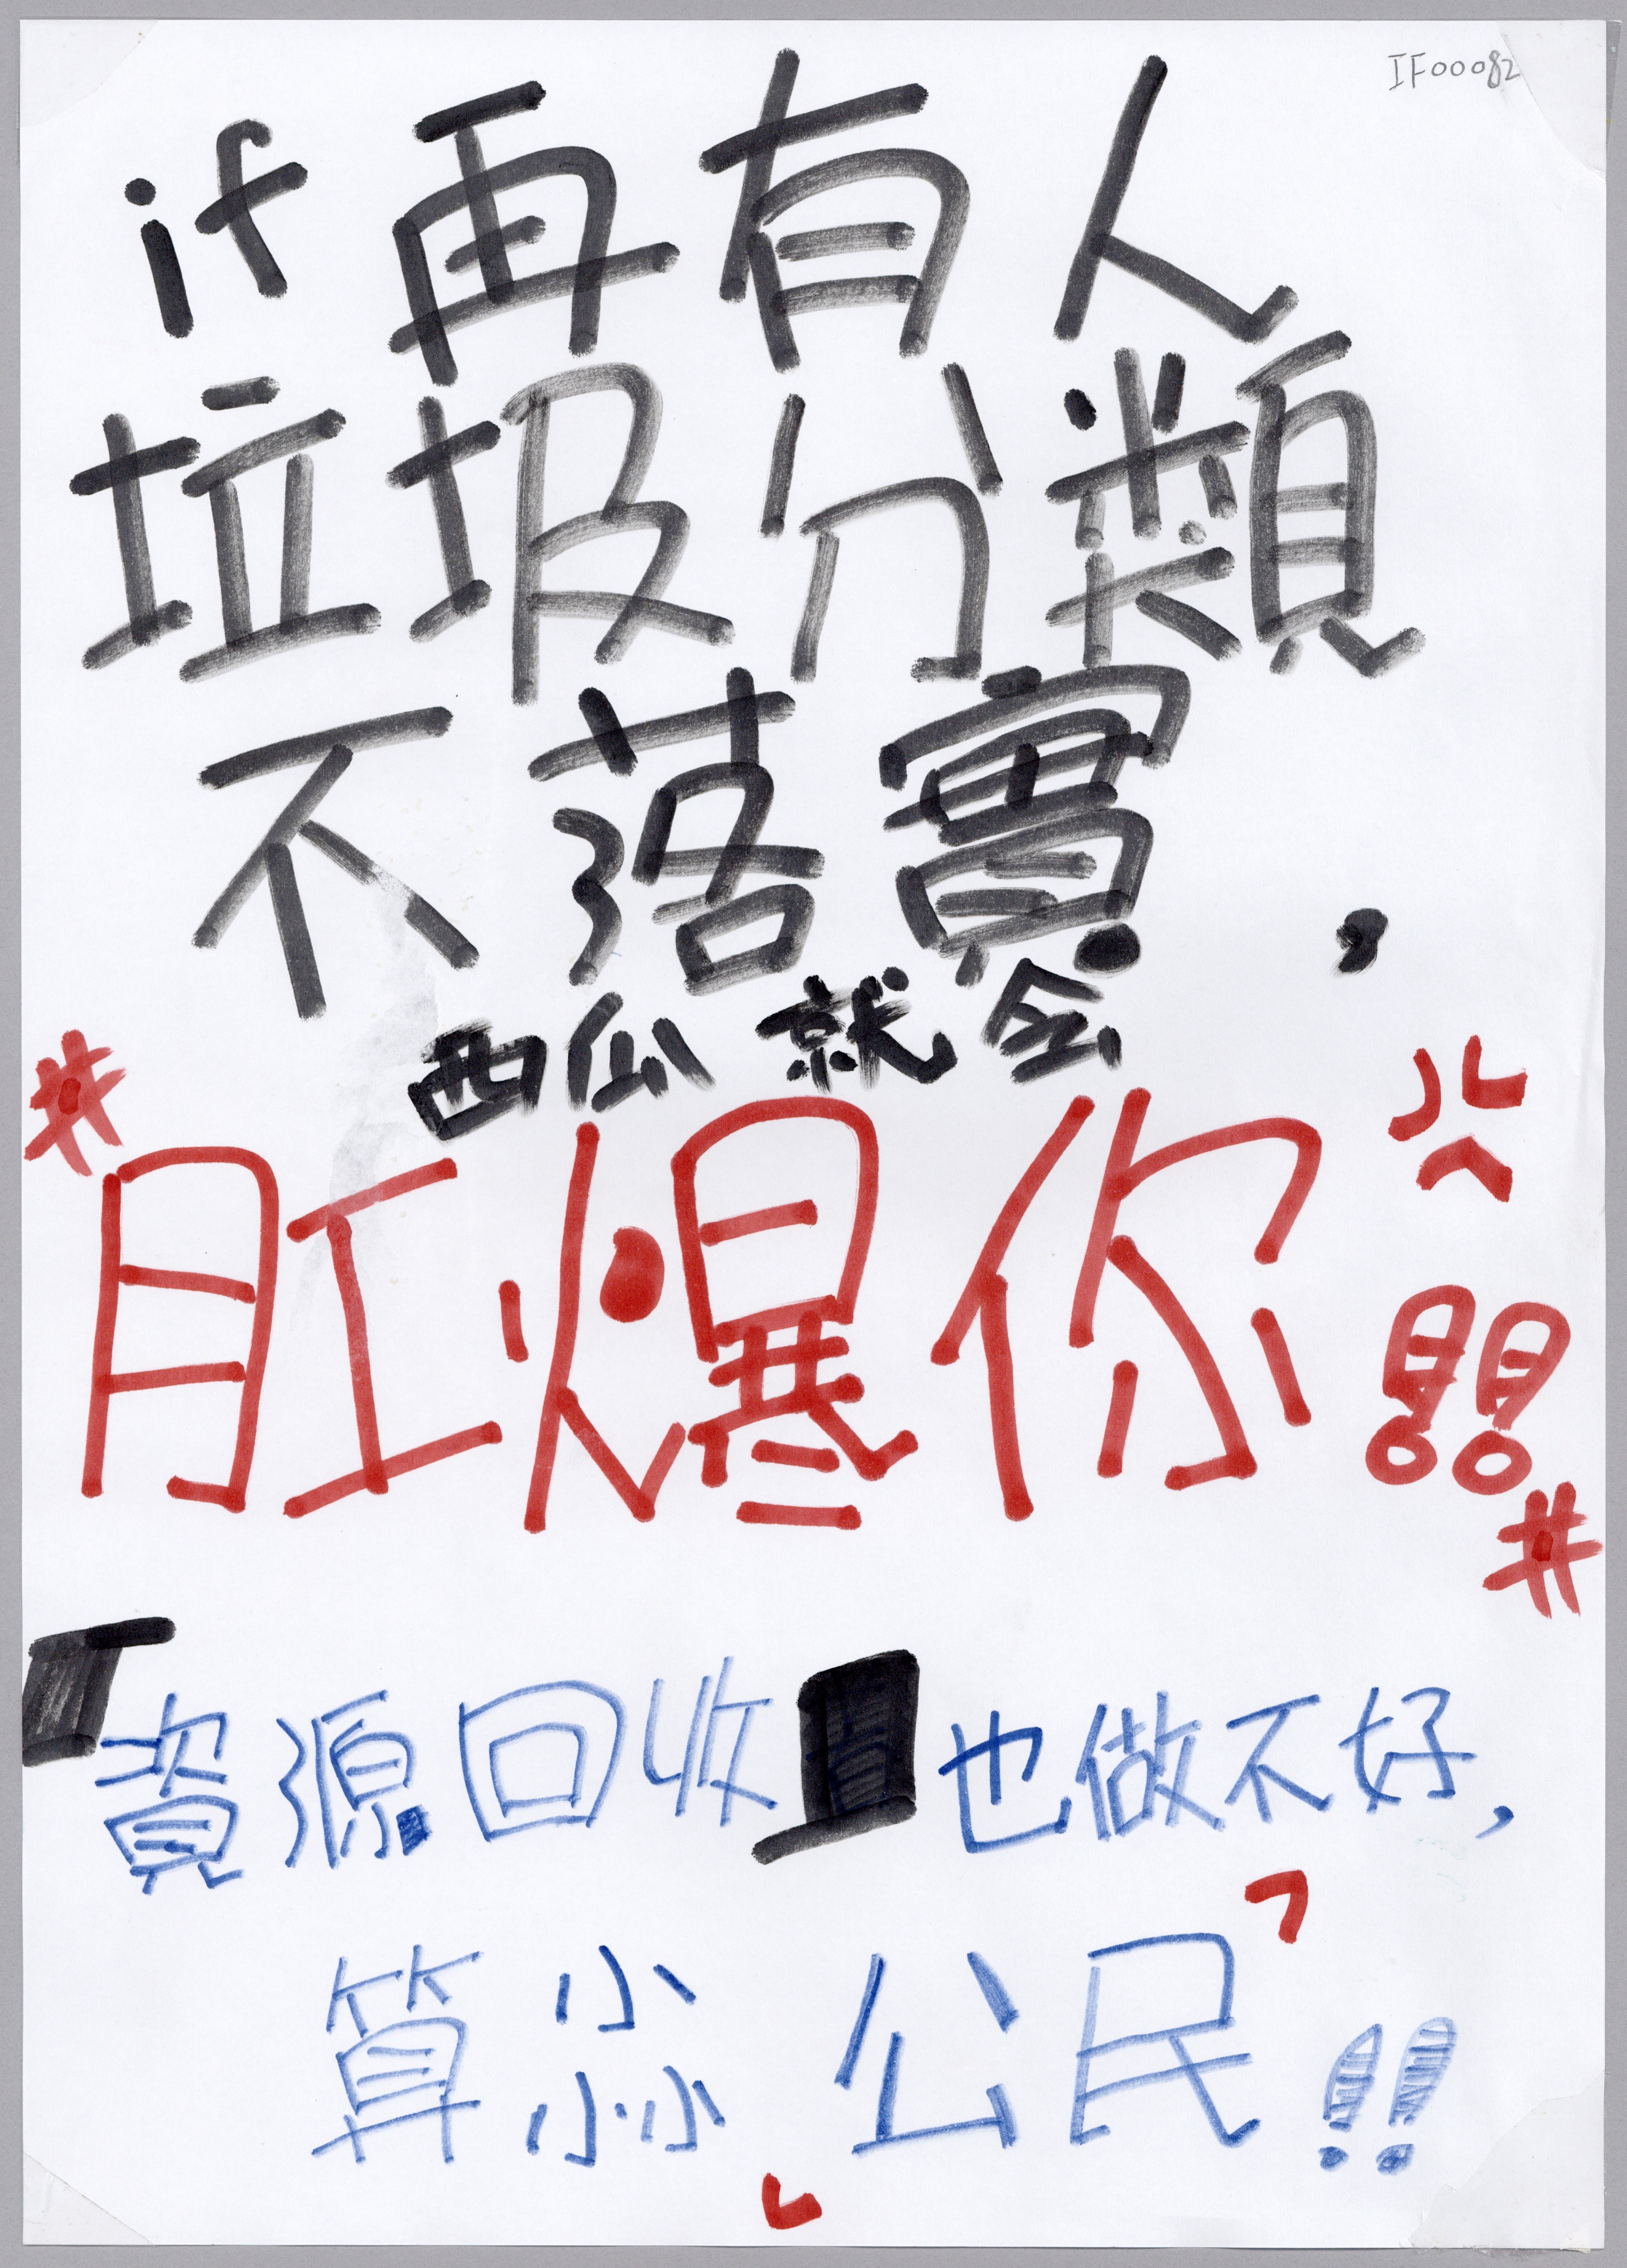 IF00082
if 再有人
垃圾分類
不落實,
西瓜就会
肛爆你!!
資源回收也做不好,
算尛公民!!